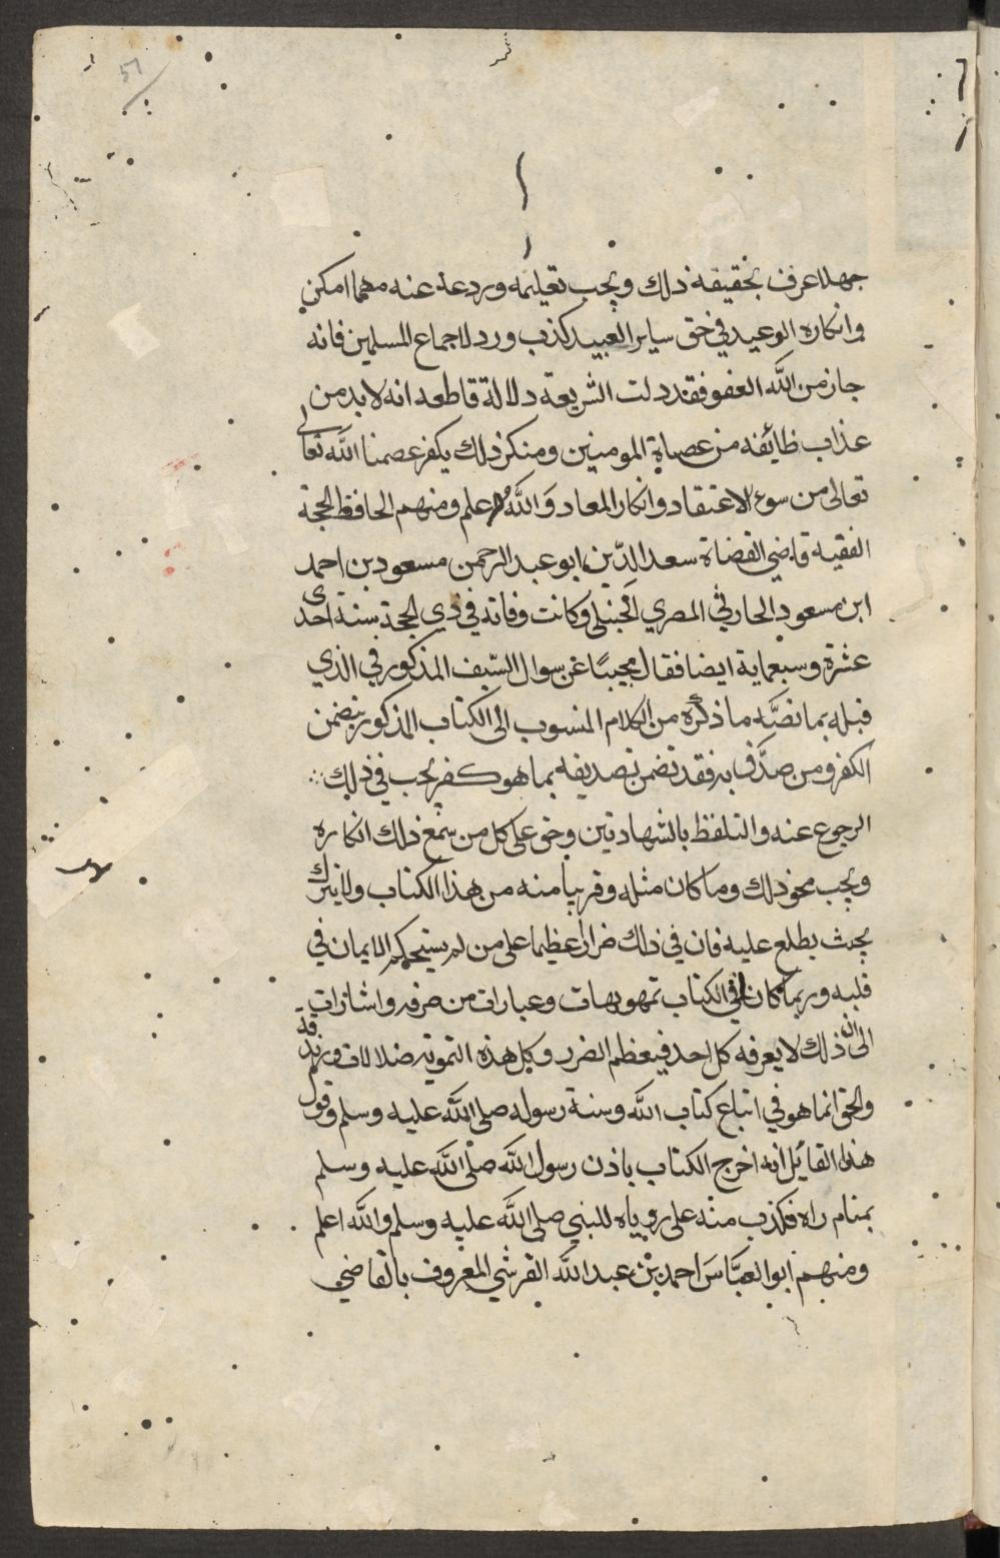 51
جهلا عرف بحقيقة ذلك ويجب تعليمه وردعه عنه مهما امكن
وانكاره الوعيد في حق ساير العبيد كذب ورد لاجماع المسلمين فانه
جاز من الله العفو فقد دلت الشريعة دلالة قاطعه انه لابد من
عذاب طائفه من عصاة المومنين ومنكر ذلك يكفر عصمنا الله تعالى
تعالى من سوء الاعتقاد وانكار المعاد والله اعلم ومنهم الحافظ الحجة
الفقيه قاضي القضاة سعد الدين ابو عبد الرحمن مسعود بن احمد
ابن مسعود الحارثي المصري الحنبلي وكانت وفاته في ذي الحجة سنة احدى
عشرة وسبعماية ايضا فقال مجيبا عن سوال السيف المذكور في الذي
قبله بما نصه ما ذكره من الكلام المنسوب الى الكتاب المذكور يتضمن
الكفر ومن صدق به فقد تضمن تصديقه بما هو كفر يجب في ذلك
الرجوع عنه والتلفظ بالشهادتين وحق على كل من سمع ذلك انكاره
ويجب محو ذلك وما كان مثله وقريبا منه من هذا الكتاب ولا يترك
بحيث يطلع عليه فان في ذلك ضرارا عظيما على من لم يستحكم الايمان في
قلبه وربما كان في الكتاب تمويهات وعبارات من خرفه واشارات
الى ان ذلك لا يعرفه كل احد فيعظم الضرر وكل هذه التمويه ضلالات وزندقة
والحق انما هو في اتباع كتاب الله وسنة رسوله صلى الله عليه وسلم وقول
هذا القائل انه اخرج الكتاب باذن رسول الله صلى الله عليه وسلم
بمنام راه فكذب منه على روياه للنبي صلى الله عليه وسلم والله اعلم
ومنهم ابو العباس احمد بن عبد الله القرشي المعروف بالقاضي